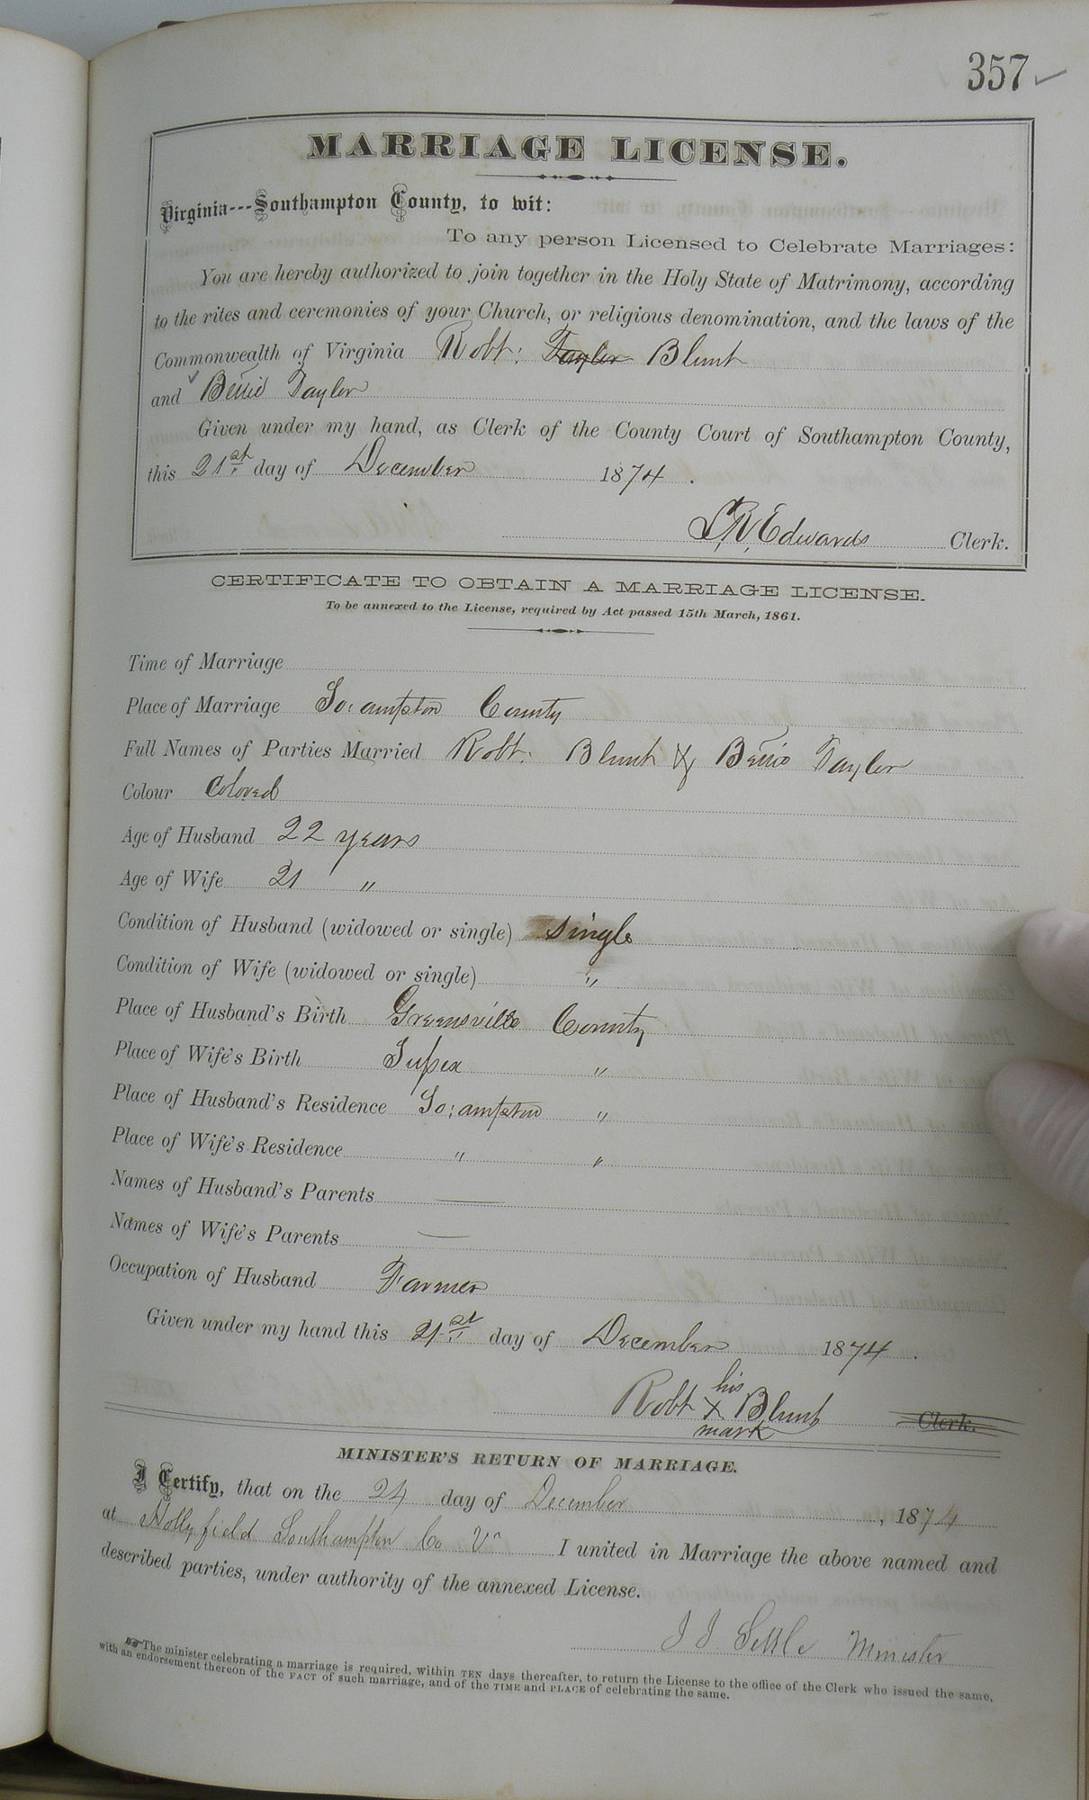 357
MARRIAGE LICENSE.
Virginia---Southampton County, to wit:
To any person Licensed to Celebrate Marriages:
You are hereby authorized to join together in the Holy State of Matrimony, according
to the rites and ceremonies of your Church, or religious denomination, and the laws of the
Commonwealth of Virginia Robt: Taylor Blunt
and Bettie Taylor
Given under my hand, as Clerk of the County Court of Southampton County,
this 21st day of December 1874.
L. R. Edwards Clerk.
CERTIFICATE TO OBTAIN A MARRIAGE LICENSE.
To be annexed to the License, required by Act passed 15th March, 1861.
Time of Marriage
Place of Marriage So:ampton County
Full Names of Parties Married Robt: Blunt & Bettie Taylor
Colour Colored
Age of Husband 22 years
Age of Wife 21 "
Condition of Husband (widowed or single) Single
Condition of Wife (widowed or single) "
Place of Husband's Birth Greensville County
Place of Wife's Birth Sussex "
Place of Husband's Residence So:ampton "
Place of Wife's Residence " "
Names of Husband's Parents —
Names of Wife's Parents —
Occupation of Husband Farmer
Given under my hand this 21st day of December 1874.
his
Robt X Blunt Clerk.
mark
MINISTER'S RETURN OF MARRIAGE.
I Certify, that on the 24 day of December, 1874
at Hollyfield Southampton Co Va I united in Marriage the above named and
described parties, under authority of the annexed License.
J J Minister
The minister celebrating a marriage is required, within TEN days thereafter, to return the License to the office of the Clerk who issued the same,
with an endorsement thereon of the FACT of such marriage, and of the TIME and PLACE of celebrating the same.